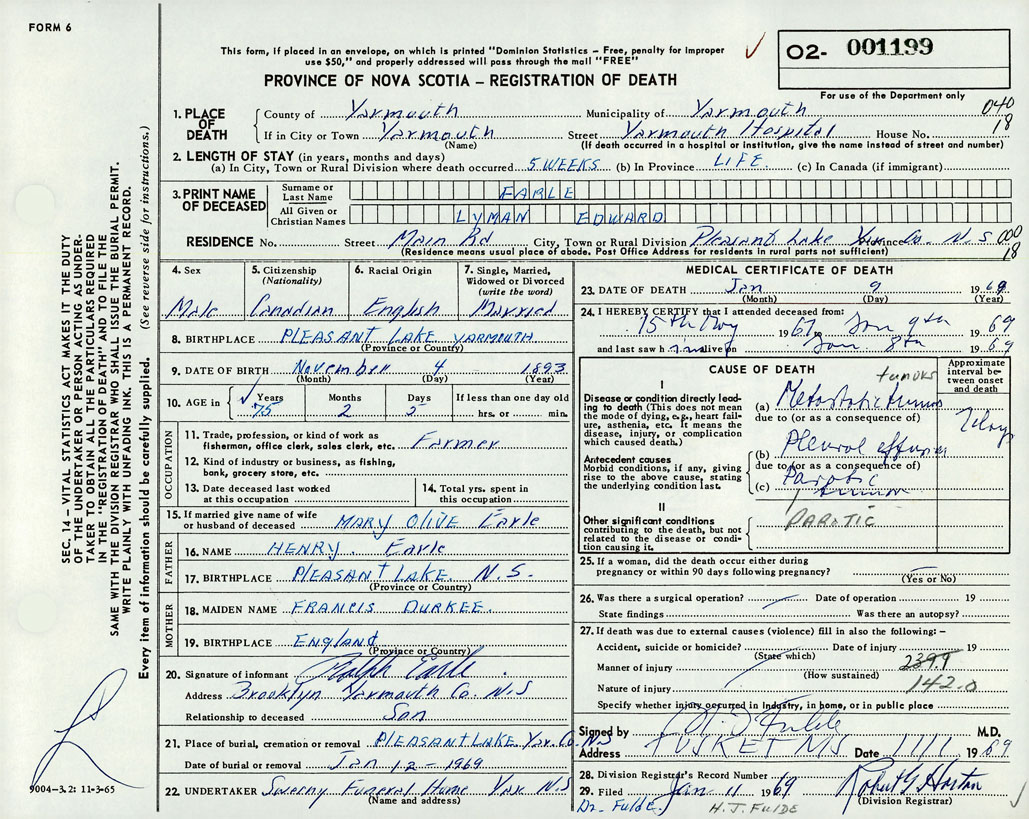 FORM 6
This form, if placed in an envelope, on which is printed "Dominion Statistics – Free, penalty for improper
use $50," and properly addressed will pass through the mail "FREE"
02- 001199
For use of the Department only
PROVINCE OF NOVA SCOTIA – REGISTRATION OF DEATH
040
18
1. PLACE OF DEATH
County of Yarmouth Municipality of Yarmouth
If in City or Town Yarmouth Street Yarmouth Hospital House No.
(Name) (If death occurred in a hospital or institution, give the name instead of street and number)
2. LENGTH OF STAY (in years, months and days)
(a) In City, Town or Rural Division where death occurred 5 WEEKS (b) In Province LIFE (c) In Canada (if immigrant)
3. PRINT NAME OF DECEASED
Surname or Last Name EARLE
All Given or Christian Names LYMAN EDWARD
RESIDENCE No. Street Main Rd City, Town or Rural Division Pleasant Lake Yar. Province Co. N.S. 000
(Residence means usual place of abode. Post Office Address for residents in rural parts not sufficient) 18
4. Sex Male
5. Citizenship (Nationality) Canadian
6. Racial Origin English
7. Single, Married, Widowed or Divorced (write the word) Married
8. BIRTHPLACE PLEASANT LAKE YARMOUTH
(Province or Country)
9. DATE OF BIRTH November 4 1893
(Month) (Day) (Year)
10. AGE in Years 75 Months 2 Days 5 If less than one day old hrs. or min.
OCCUPATION
11. Trade, profession, or kind of work as fisherman, office clerk, sales clerk, etc. Farmer
12. Kind of industry or business, as fishing, bank, grocery store, etc.
13. Date deceased last worked at this occupation
14. Total yrs. spent in this occupation
15. If married give name of wife or husband of deceased MARY OLIVE Earle
FATHER
16. NAME HENRY. Earle
17. BIRTHPLACE PLEASANT LAKE. N.S.
(Province or Country)
MOTHER
18. MAIDEN NAME FRANCIS DURKEE.
19. BIRTHPLACE ENGLAND
(Province or Country)
20. Signature of informant Ralph Earle
Address Brooklyn Yarmouth Co N.S
Relationship to deceased Son
21. Place of burial, cremation or removal PLEASANT LAKE Yar. Co. N.S
Date of burial or removal Jan 12 - 1969
22. UNDERTAKER Sweeny Funeral Home Yar. N.S
(Name and address)
MEDICAL CERTIFICATE OF DEATH
23. DATE OF DEATH Jan 9 1969
(Month) (Day) (Year)
24. I HEREBY CERTIFY that I attended deceased from:
15th 1967 Jan 9th 1969
and last saw him alive on Jan 8th 1969
CAUSE OF DEATH
Approximate interval between onset and death
I
Disease or condition directly leading to death (This does not mean the mode of dying, e.g., heart failure, asthenia, etc. It means the disease, injury, or complication which caused death.)
tumors
(a) Metastatic tumors
due to (or as a consequence of)
Antecedent causes
Morbid conditions, if any, giving rise to the above cause, stating the underlying condition last.
(b) Pleural effusion
due to (or as a consequence of)
(c) Parotic tumor
II
Other significant conditions
contributing to the death, but not related to the disease or condition causing it.
PAROTIC
25. If a woman, did the death occur either during pregnancy or within 90 days following pregnancy?
(Yes or No)
26. Was there a surgical operation? Date of operation 19
State findings Was there an autopsy?
27. If death was due to external causes (violence) fill in also the following: –
Accident, suicide or homicide? Date of injury 19
(State which)
Manner of injury 239.1
(How sustained)
Nature of injury 142.0
Specify whether injury occurred in Industry, in home, or in public place
Signed by H. J. Fulde M.D.
Address TUSKET NS Date 11/1 1969
28. Division Registrar's Record Number
29. Filed Jan 11 1969 Robert G Horton
(Division Registrar)
Dr. Fulde. H.J. FULDE
SEC. 14 – VITAL STATISTICS ACT MAKES IT THE DUTY
OF THE UNDERTAKER OR PERSON ACTING AS UNDER-
TAKER TO OBTAIN ALL THE PARTICULARS REQUIRED
IN THE "REGISTRATION OF DEATH" AND TO FILE THE
SAME WITH THE DIVISION REGISTRAR WHO SHALL ISSUE THE BURIAL PERMIT.
WRITE PLAINLY WITH UNFADING INK. THIS IS A PERMANENT RECORD.
Every item of information should be carefully supplied. (See reverse side for instructions.)
9004-3.2: 11-3-65